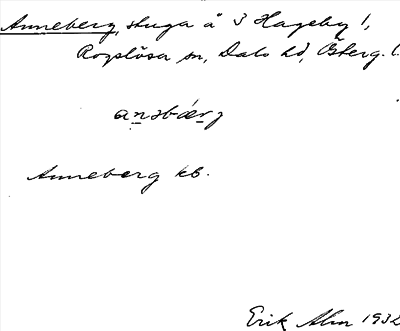 Anneberg, stuga å 3 Hageby 1,
Rogslösa sn, Dals hd, Österg. l.
ansbærj
Anneberg kb.
Erik Alm 1932